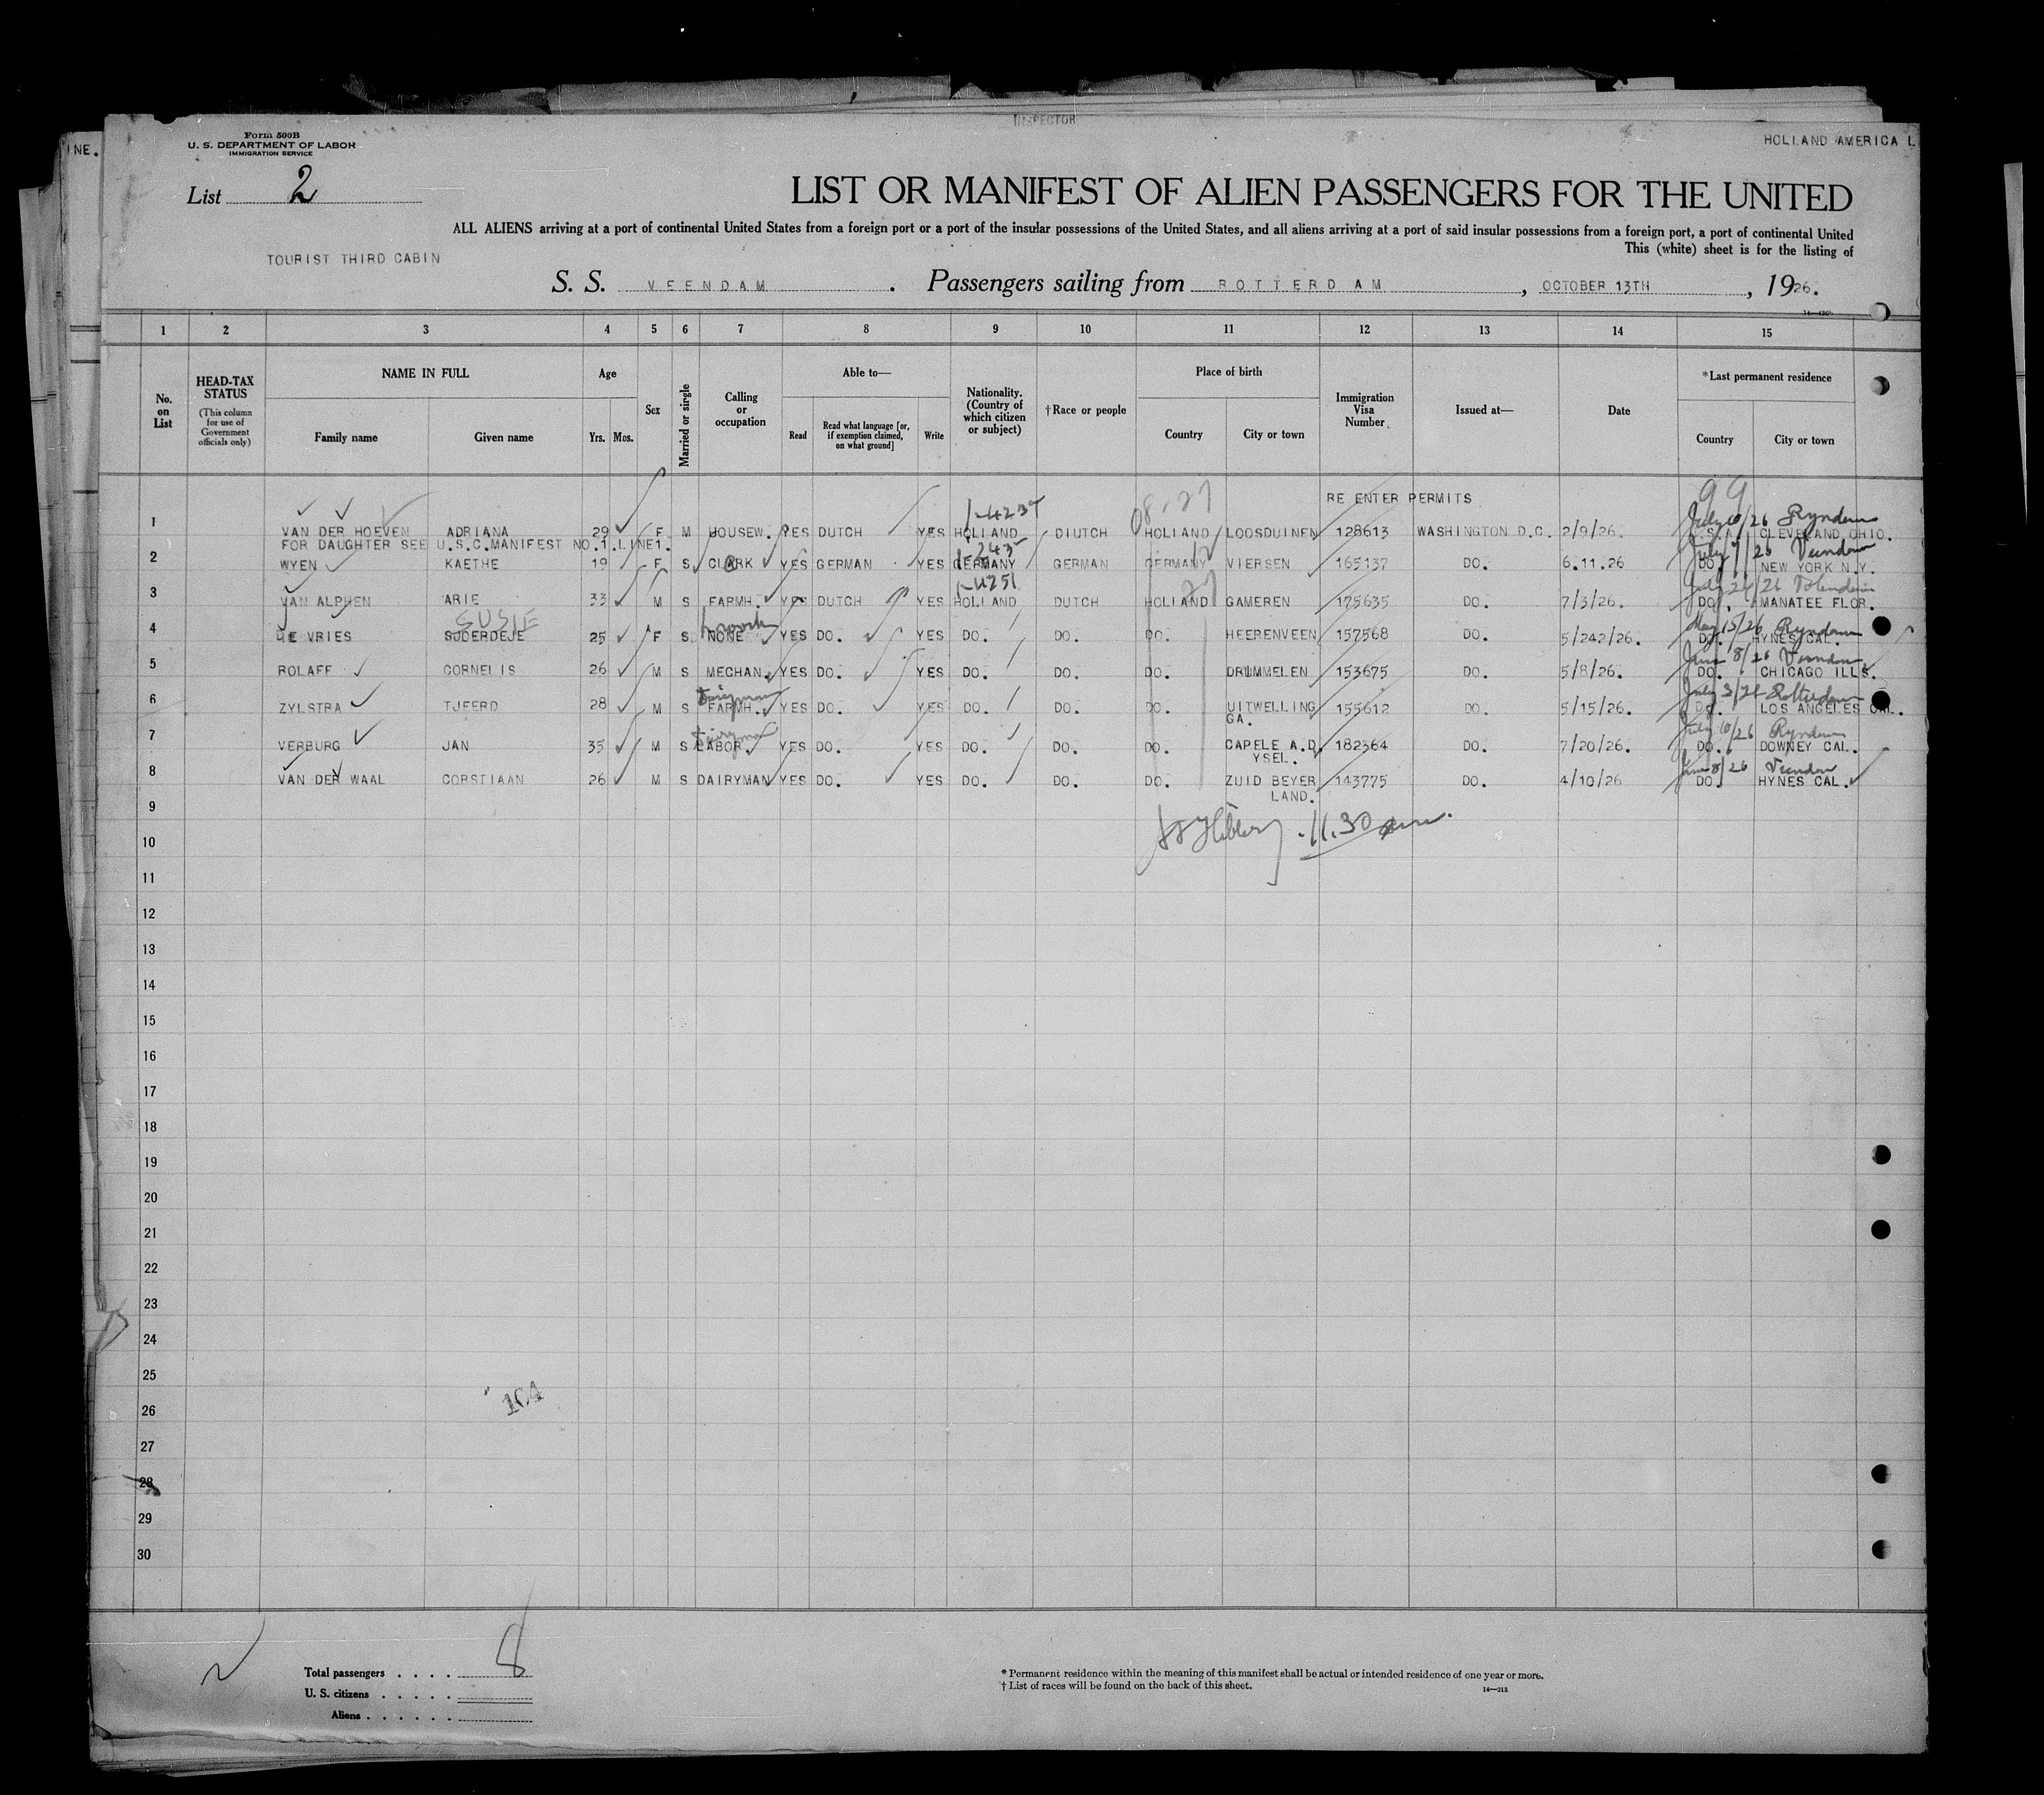 INSPECTOR
Form 500B
U. S. DEPARTMENT OF LABOR
IMMIGRATION SERVICE
HOLLAND AMERICA L
INE.
List 2
LIST OR MANIFEST OF ALIEN PASSENGERS FOR THE UNITED
ALL ALIENS arriving at a port of continental United States from a foreign port or a port of the insular possessions of the United States, and all aliens arriving at a port of said insular possessions from a foreign port, a port of continental United
This (white) sheet is for the listing of
TOURIST THIRD CABIN
S. S. VEENDAM . Passengers sailing from ROTTERDAM , OCTOBER 13TH , 1926.
1 2 3 4 5 6 7 8 9 10 11 12 13 14 15
No. on List
HEAD-TAX STATUS
(This column for use of Government officials only)
NAME IN FULL
Family name Given name
Age
Yrs. Mos.
Sex
Married or single
Calling or occupation
Able to—
Read
Read what language [or, if exemption claimed, on what ground]
Write
Nationality. (Country of which citizen or subject)
†Race or people
Place of birth
Country City or town
Immigration Visa Number
Issued at—
Date
*Last permanent residence
Country City or town
RE ENTER PERMITS
08-27 99
1-4237 July 10/26 Ryndam
1 VAN DER HOEVEN ADRIANA 29 F M HOUSEW. YES DUTCH YES HOLLAND DIUTCH HOLLAND LOOSDUINEN 128613 WASHINGTON D.C. 2/9/26. U.S.A. CLEVELAND OHIO.
FOR DAUGHTER SEE U.S.C.MANIFEST NO.1.LINE1.
Veendam
2 WYEN KAETHE 19 F S CLARK YES GERMAN YES GERMANY GERMAN GERMANY VIERSEN 165137 DO. 6.11.26 DO. NEW YORK N.Y.
1-4251 27
3 VAN ALPHEN ARIE 33 M S FARMH. YES DUTCH YES HOLLAND DUTCH HOLLAND GAMEREN 175635 DO. 7/3/26. DO. MANATEE FLOR.
SUSIE May 15/26 Ryndam
4 DE VRIES SJOERDEJE 25 F S NONE YES DO. YES DO. DO. DO. HEERENVEEN 157568 DO. 5/242/26. DO. HYNES CAL.
June 8/26 Veendam
5 ROLAFF CORNELIS 26 M S MECHAN. YES DO. YES DO. DO. DO. DRUMMELEN 153675 DO. 5/8/26. DO. CHICAGO ILLS.
Dairyman July 3/26 Rotterdam
6 ZYLSTRA TJEERD 28 M S FARMH. YES DO. YES DO. DO. DO. UITWELLING 155612 DO. 5/15/26. DO. LOS ANGELES CAL.
GA.
Dairyman July 10/26 Ryndam
7 VERBURG JAN 35 M S LABOR. YES DO. YES DO. DO. DO. CAPELE A.D. 182364 DO. 7/20/26. DO. DOWNEY CAL.
YSEL.
June 8/26 Veendam
8 VAN DER WAAL CORSTIAAN 26 M S DAIRYMAN YES DO. YES DO. DO. DO. ZUID BEYER 143775 DO. 4/10/26 DO. HYNES CAL.
LAND.
9
11.30 am.
10
11
12
13
14
15
16
17
18
19
20
21
22
23
24
25
104
26
27
28
29
30
Total passengers . . . . 8
U. S. citizens . . . . .
Aliens . . . . . .
* Permanent residence within the meaning of this manifest shall be actual or intended residence of one year or more.
† List of races will be found on the back of this sheet.
14—213